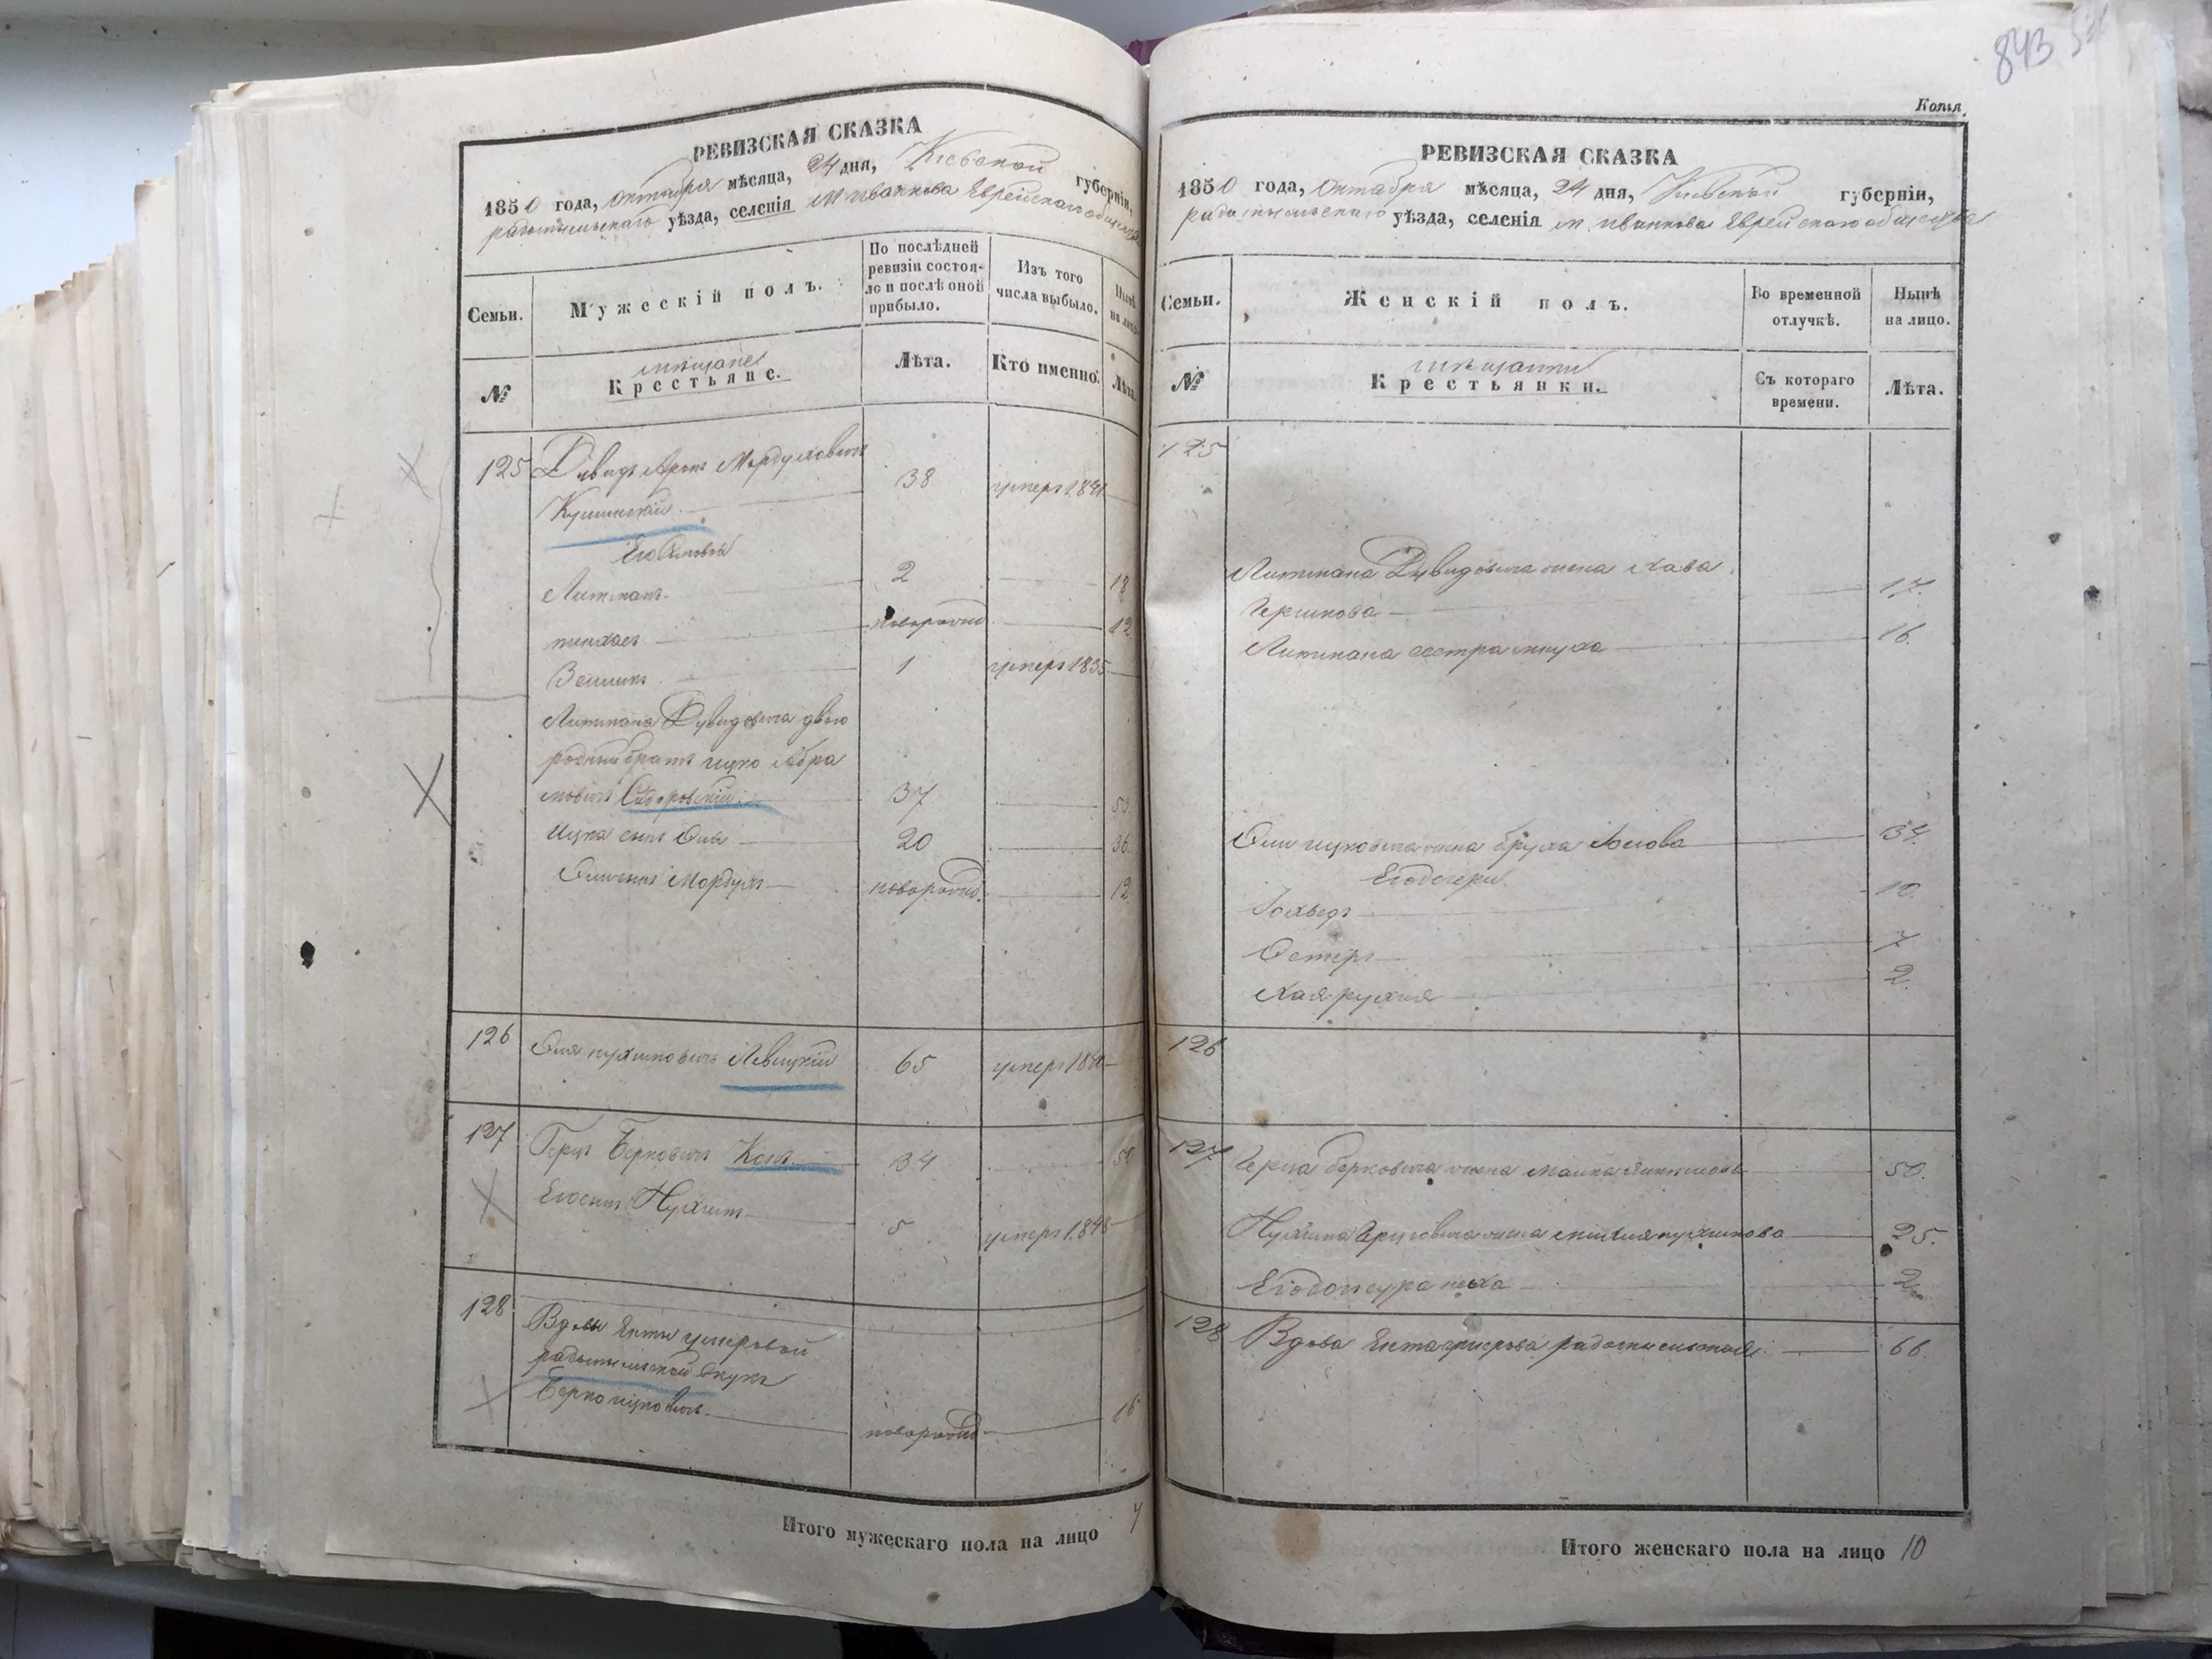 РЕВИЗСКАЯ СКАЗКА
1850 года, Октября мѣсяца, 24 дня, Кіевской губерніи,
радомысльскаго уѣзда, селенія м иванкова Еврейскаго общества
Семьи.
Мужескій полъ.
По послѣдней ревизіи состояло и послѣ оной прибыло.
Изъ того числа выбыло.
Нынѣ на лицо
№
мѣщане
Крестьяне.
Лѣта.
Кто именно.
Лѣта.
125 Дувидъ Аронъ Мордуховичъ
38 умеръ 1841
Его сыновья
Литманъ 2 18
пинхасъ новорожд 12
Зельманъ 1 умеръ 1835
Литмана Дувидовича двою
родный братъ ицко Абра
мовичъ 37 53
Ицка сынъ Эль 20 36
Мордухъ новорожд. 12
126 Эля нухимовичъ Левицкій 65 умеръ
127 Герцъ Берковичъ 34 50
Его сынъ Нухимъ 5 умеръ 1848
128 Вдовы Енты умеровой
радомысльской внукъ
Берко ицковичъ новорожд 16
Итого мужескаго пола на лицо 7
843
Копія
РЕВИЗСКАЯ СКАЗКА
1850 года, Октября мѣсяца, 24 дня, Кіевской губерніи,
радомысльскаго уѣзда, селенія м. иванкова Еврейскаго общества
Семьи.
Женскій полъ.
Во временной отлучкѣ.
Нынѣ на лицо.
№
мѣщанки
Крестьянки.
Съ котораго времени.
Лѣта.
125
Литмана Дувидовича жена Хава
Гершкова 17.
Литмана сестра 16.
Эли ицковича жена бруха Іосіова 34.
Его дочери
Іохведъ 10.
Эстеръ 7
Хая рухля 2.
126
127 Герца берковича жена 50.
Нухима Герцовича жена нухимова 25.
Его дочь сура 2
128 Вдова Ента умерова радомысльская 66.
Итого женскаго пола на лицо 10